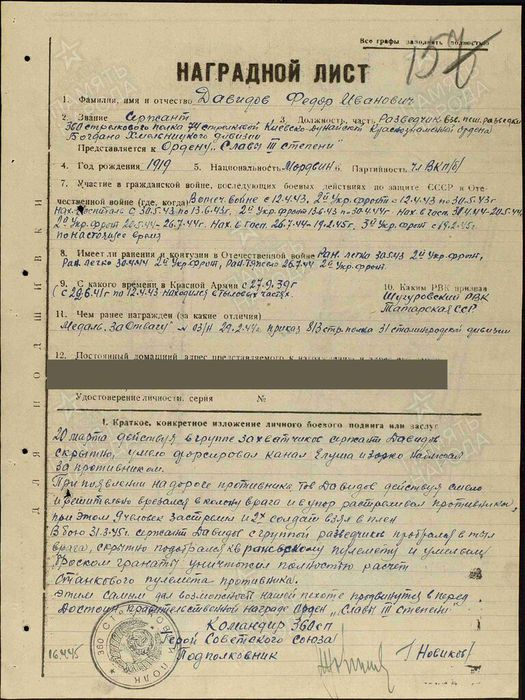 Все графы заполнять полностью
157
НАГРАДНОЙ ЛИСТ
1. Фамилия, имя и отчество Давидов Федор Иванович
2. Звание Сержант 3. Должность, часть Разведчик взв. пеш. разведки
360 стрелкового полка 74 стрелковой Киевско-Дунайской Краснознаменной ордена
Богдана Хмельницкого дивизии
Представляется к Ордену „Славы III степени"
4. Год рождения 1919 5. Национальность Мордвин 6. Партийность чл ВКП(б)
7. Участие в гражданской войне, последующих боевых действиях по защите СССР и Оте-
чественной войне (где, когда) В отеч. войне с 12.4.43, 2й Укр. фронт с 12.4.43 по 30.5.43г
Нах. госпиталь с 30.5.43 по 13.6.43г. 2й Укр. фронт 13.6.43 по 30.4.44г нах в госп. 30.4.44-20.5.44,
2й Укр. фронт 20.5.44-26.7.44г. Нах. в госп. 26.7.44-19.2.45г. 3й Укр. фронт с 19.2.45г.
по настоящее время
8. Имеет ли ранения и контузии в Отечественной войне Ран. легко 30.5.43 2й Укр. фронт,
Ран. легко 30.4.44 2й Укр. фронт, Ран. тяжело 26.7.44 2й Укр. фронт.
9. С какого времени в Красной Армии с 27.9.39г
(с 29.6.41г по 12.4.43 находился в тыловых частях.
10. Каким РВК призван
Шугуровский РВК
Татарская ССР
11. Чем ранее награжден (за какие отличия)
Медаль „За Отвагу" № 03/Н 29.2.44г. приказ 8/3 стр. полка 31 сталинградской дивизии
12. Постоянный домашний адрес представляемого к награждению и адрес
Удостоверение личности. серия №
ДЛЯ ПОДШИВКИ
I. Краткое, конкретное изложение личного боевого подвига или заслуг
20 марта действуя в группе захватчиков сержант Давидов
скрытно, умело форсировал канал Елуша и зорко наблюдал
за противником.
При появлении на дороге противника, тов Давидов действуя смело
и решительно врезался в колонну врага и в упор расстреливал противника,
при этом 9 человек застрелил и 2х солдат взял в плен
В бою 31.3.45г. сержант Давидов с группой разведчиков пробрался в тыл
врага, скрытно подобрался к вражескому пулемету и умелым
броском гранаты уничтожил полностью расчет
станкового пулемета противника.
Этим самым дал возможность нашей пехоте продвинуться вперед.
Достоин правительственной награде Орден „Славы III степени"
Командир 360 сп
Герой Советского Союза
Подполковник Г. Новиков
16.4.45
360 СТРЕЛКОВЫЙ ПОЛК
ПАМЯТЬ НАРОДА